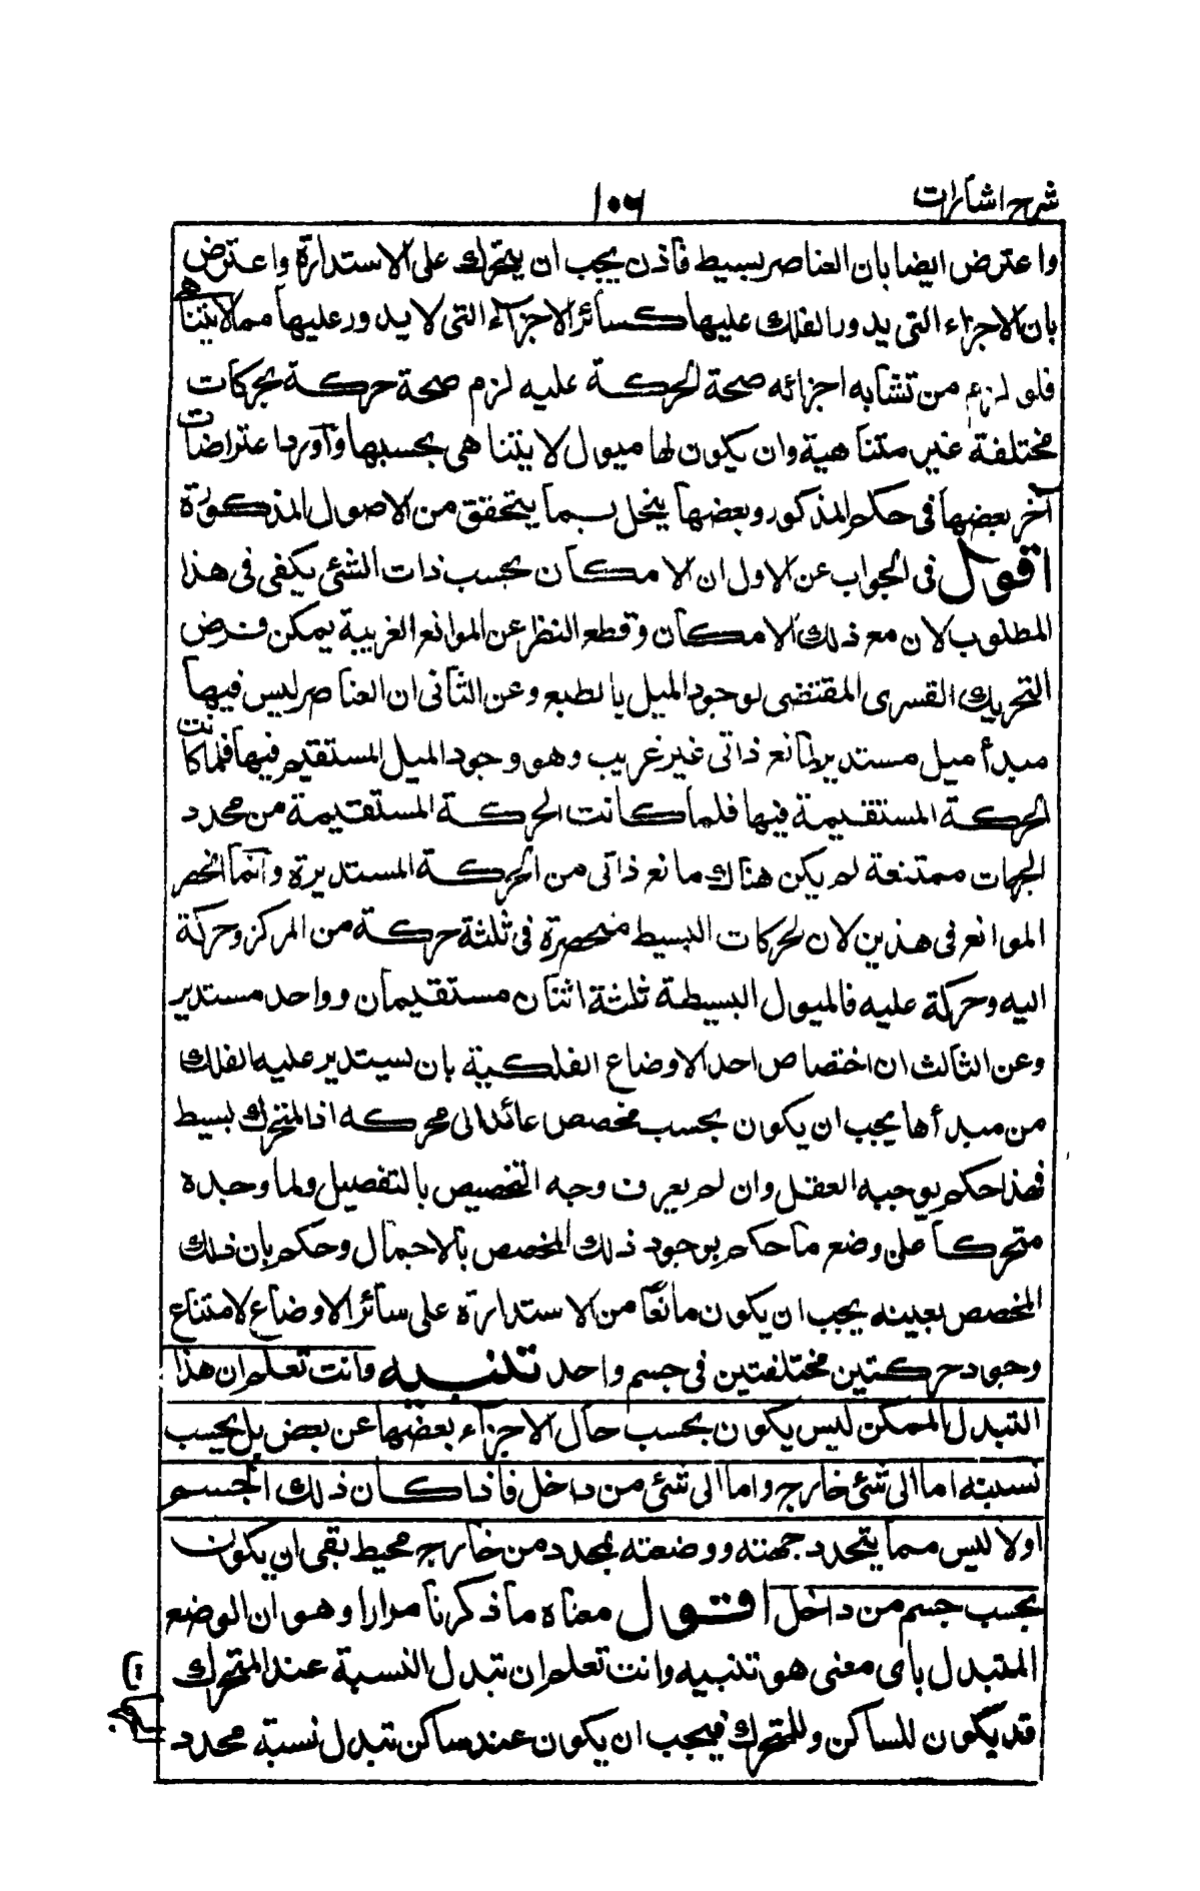 شرح اشارات
۱۰۶
واعترض ايضا بان العناصر بسيط فاذن يجب ان يتحرك على الاستدارة واعترض
بان الاجزاء التى يدور الفلك عليها كسائر الاجزاء التى لا يدور عليها مما لا يتناهى
فلو لزم من تشابه اجزائه صحة الحركة عليه لزم صحة حركة بحركات
مختلفة غير متناهية وان يكون لها ميول لا يتناهى بحسبها واورد اعتراضات
آخر بعضها فى حكم المذكور وبعضها ينحل بما يتحقق من الاصول المذكورة
اقول فى الجواب عن الاول ان الامكان بحسب ذات الشئ يكفى فى هذا
المطلوب لان مع ذلك الامكان وقطع النظر عن الموانع الغريبة يمكن فرض
التحريك القسرى المقتضى لوجود الميل بالطبع وعن الثانى ان العناصر ليس فيها
مبدأ ميل مستدير لمانع ذاتى غير غريب وهو وجود الميل المستقيم فيها فلما كانت
الحركة المستقيمة فيها فلما كانت الحركة المستقيمة من محدد
الجهات ممتنعة لم يكن هناك مانع ذاتى من الحركة المستديرة وانما انحصر
الموانع فى هذين لان الحركات البسيط منحصرة فى ثلثة حركة من المركز وحركة
اليه وحركة عليه فالميول البسيطة ثلثة اثنان مستقيمان وواحد مستدير
وعن الثالث ان اختصاص احد الاوضاع الفلكية بان يستدير عليه الفلك
من مبدأها يجب ان يكون بحسب مخصص عائد الى محركه اذ المتحرك بسيط
فهذا حكم يوجبه العقل وان لم يعرف وجه التخصيص بالتفصيل ولما وجده
متحركا على وضع ما حكم بوجود ذلك المخصص بالاجمال وحكم بان ذلك
المخصص بعينه يجب ان يكون مانعا من الاستدارة على سائر الاوضاع لامتناع
وجود حركتين مختلفتين فى جسم واحد تنبيه وانت تعلم ان هذا
التبدل الممكن ليس يكون بحسب حال الاجزاء بعضها عن بعض بل بحسب
نسبته اما الى شئ خارج واما الى شئ من داخل فاذا كان ذلك الجسم
اولا ليس مما يتحدد جهته ووضعته بمحدد من خارج محيط بقى ان يكون
بحسب جسم من داخل اقول معناه ما ذكرنا مرارا وهو ان الوضع
المتبدل باى معنى هو تنبيه وانت تعلم ان تبدل النسبة عند المتحرك
قد يكون للساكن وللمتحرك فيجب ان يكون عند ساكن تبدل نسبة محدد